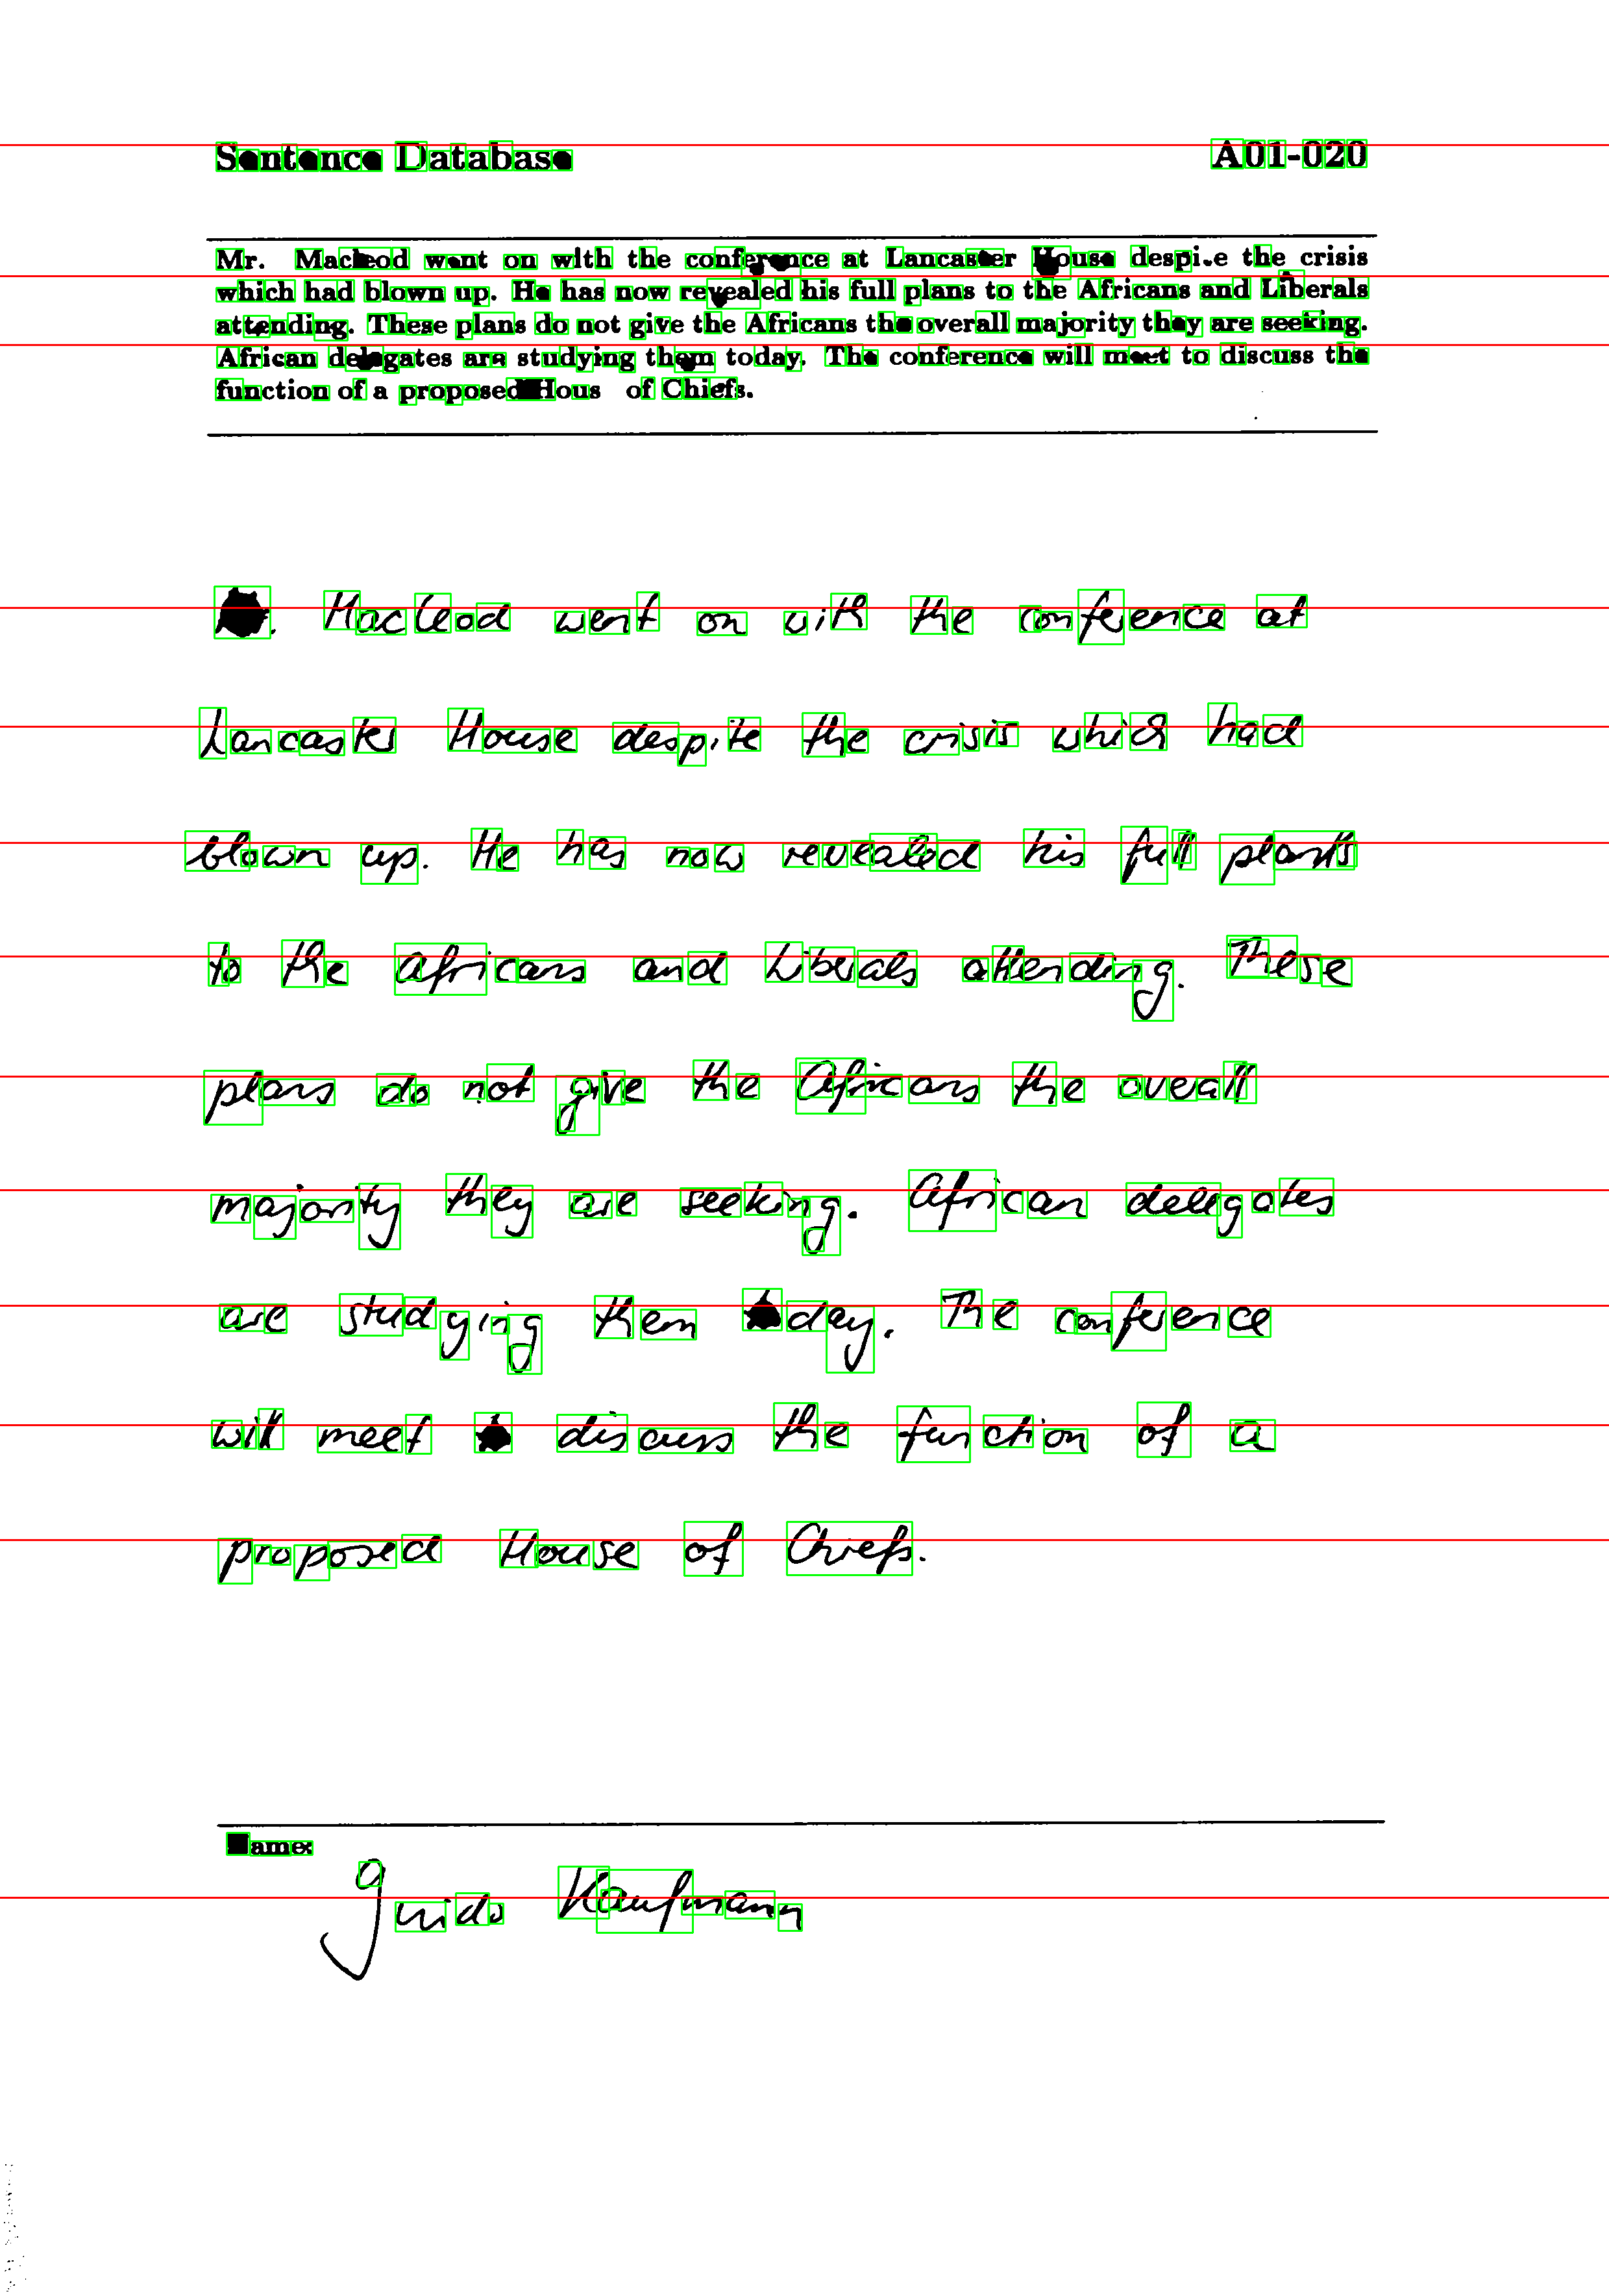 Sentence Database A01-020
Mr. Macleod went on with the conference at Lancaster House despite the crisis
which had blown up. He has now revealed his full plans to the Africans and Liberals
attending. These plans do not give the Africans the overall majority they are seeking.
African delegates are studying them today. The conference will meet to discuss the
function of a proposed Hous of Chiefs.
Macleod went on with the conference at
Lancaster House despite the crisis which had
blown up. He has now revealed his full plans
to the Africans and Liberals attending. These
plans do not give the Africans the overall
majority they are seeking. African delegates
are studying them day. The conference
will meet discuss the function of a
proposed House of Chiefs.
Name:
Guido Kaufmann